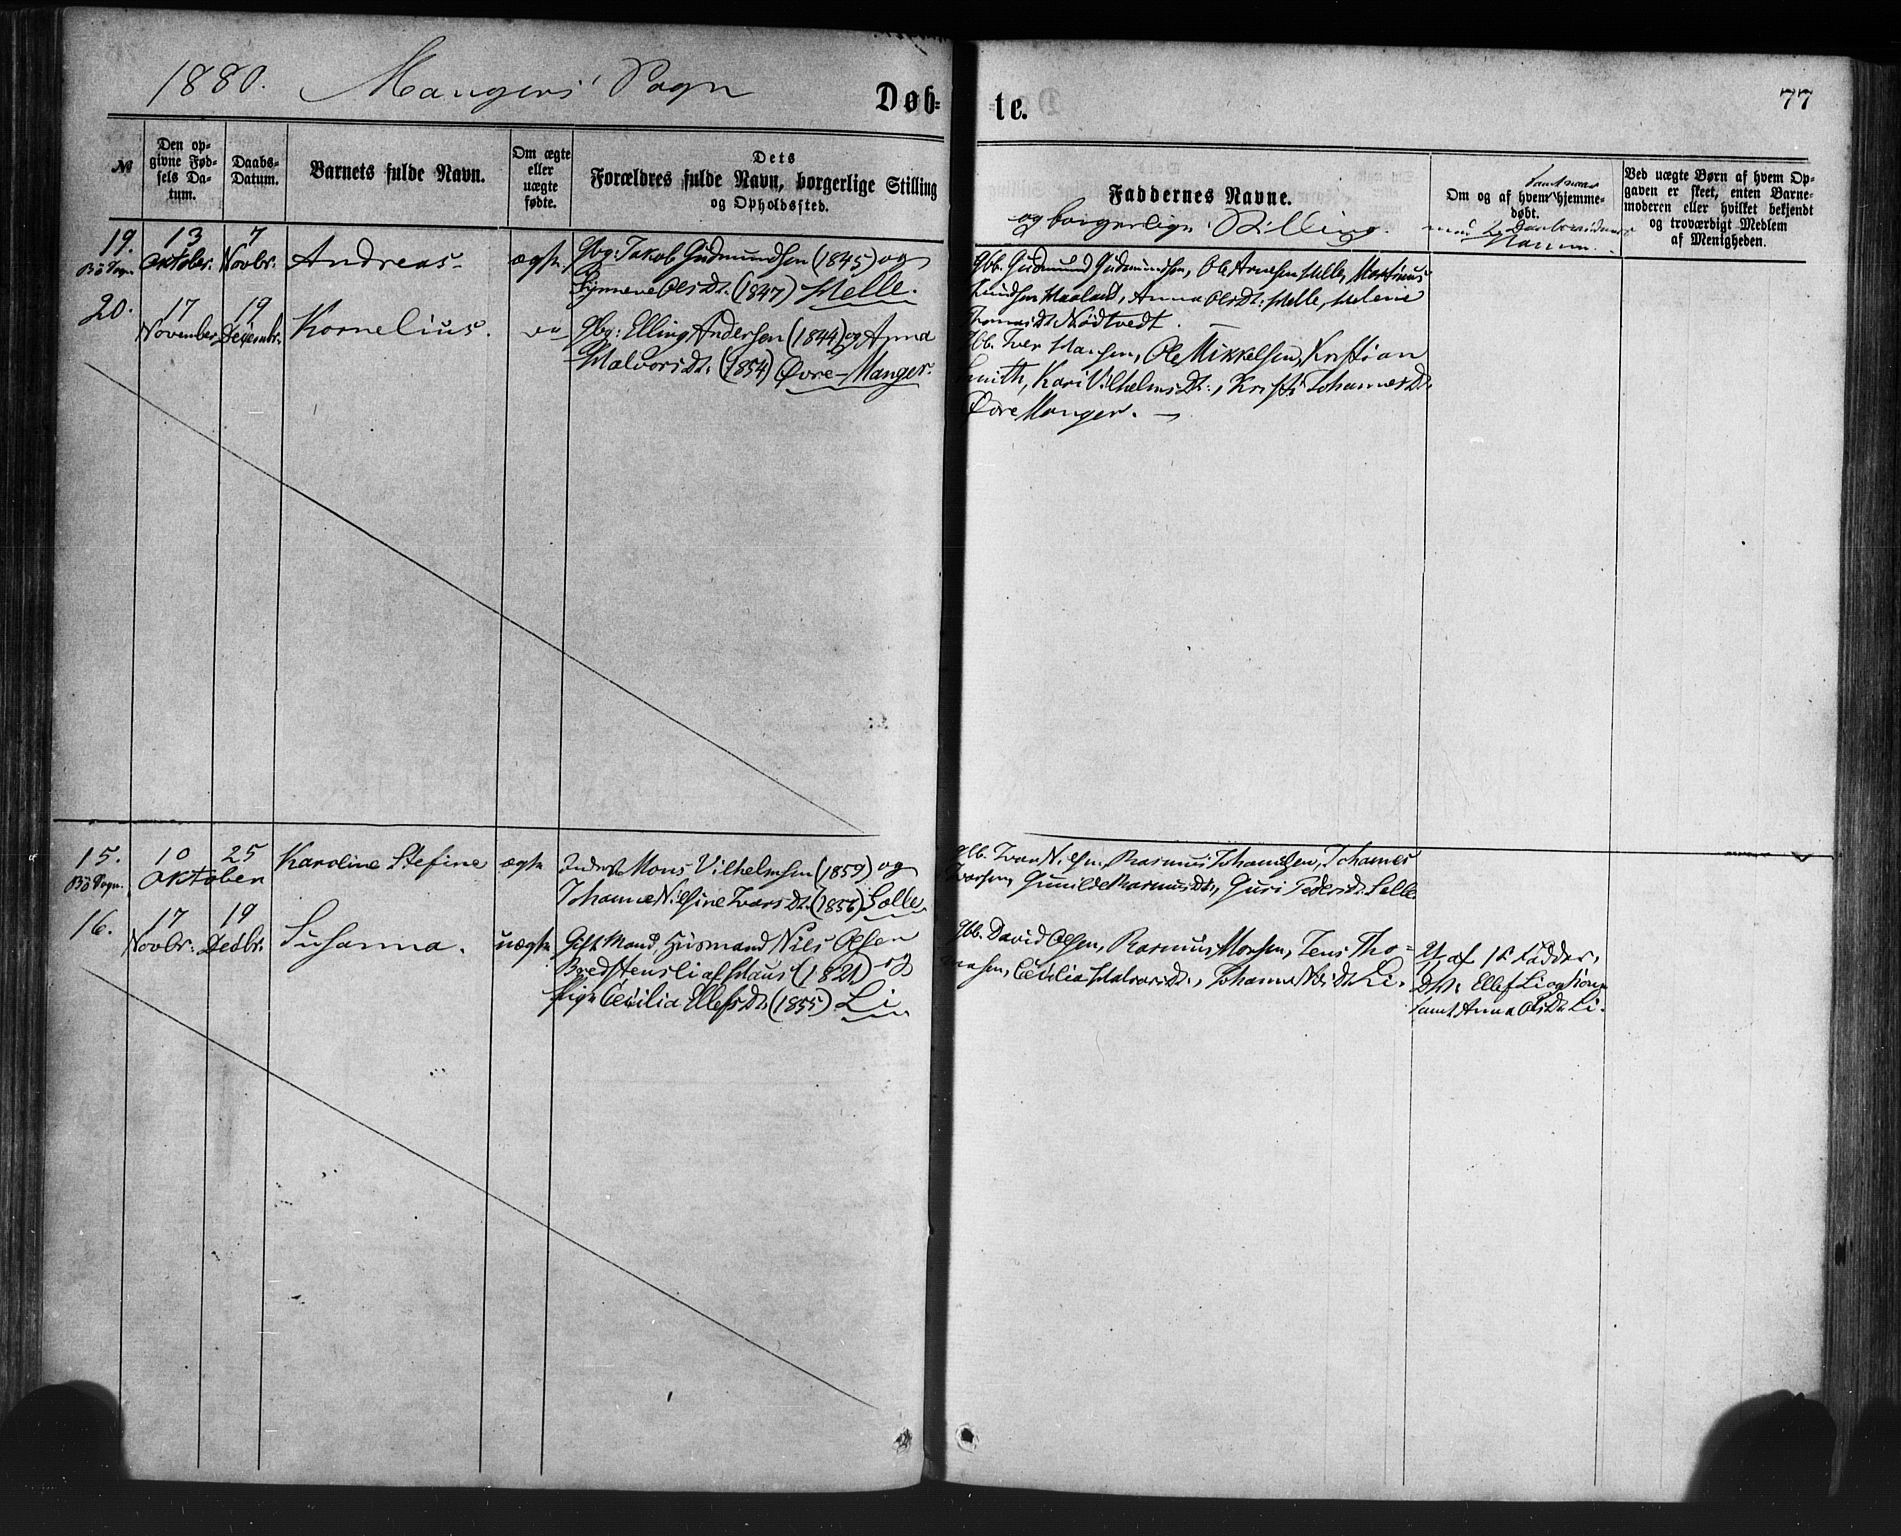 1880. Mangers Sogn
Døb-
te.
77
№
Den op-
givne Fød-
sels Da-
tum.
Daabs-
Datum.
Barnets fulde Navn.
Om ægte
eller
uægte
fødte.
Dets
Forældres fulde Navn, borgerlige Stilling
og Opholdssted.
Faddernes Navne.
og borgerlige Stilling.
samt
Om og af hvem hjemme-
døbt.
Ved uægte Børn af hvem Op-
gaven er skeet, enten Barne-
moderen eller hvilket bekjendt
og troværdigt Medlem
af Menigheden.
19.
Bø Sogn.
13
Oktober.
7
Novbr.
Andreas.
ægte
Gbg: Jakob Gudmundsen (1845) og
Synneve Olsdt. (1847) Helle.
Gbb. Gudmund Gudmundsen, Ole Arnesen Helle, Martinus
Knudsen Haaland, Anna Olsdt. Helle, Helene
Thomasdt Nödtvedt.
20.
17
November
19
Decembr.
Kornelius.
Gbg: Elling Andersen (1844) og Anna
Halvorsdt. (1854) Øvre-Manger.
Gbb. Iver Hansen, Ole Mikkelsen, Kristian
Smith, Kari Vilhelmsdt., Kristi Johannesdt.
Øvre Manger.
15.
Bø Sogn.
10
25
Oktober
Karoline Stefine
ægte
Inderst Mons Vilhelmsen (1859) og
Johanne Nilsine Ivarsdt. (1856) Sælle
Gbb. Ivar Nilsen, Rasmus Johannesen, Johannes
Ivarsen, Gunilde Rasmusdt., Guri Pedersdt. Sælle
16.
17
Novbr.
19
Decbr.
Susanna.
uægte
Gift Mand, Husmand Nils Olsen
Bredstensli af Haus (1821) og
Pige Cecilia Ellefsdt. (1855) Li
Gbb. David Olsen, Rasmus Monsen, Jens Tho-
massen, Cecilia Halvorsdt., Johanna Nilsdt. Li.
af 1ste Fadder,
Ellef Li og Kone
samt Anna Olsdt. Li.